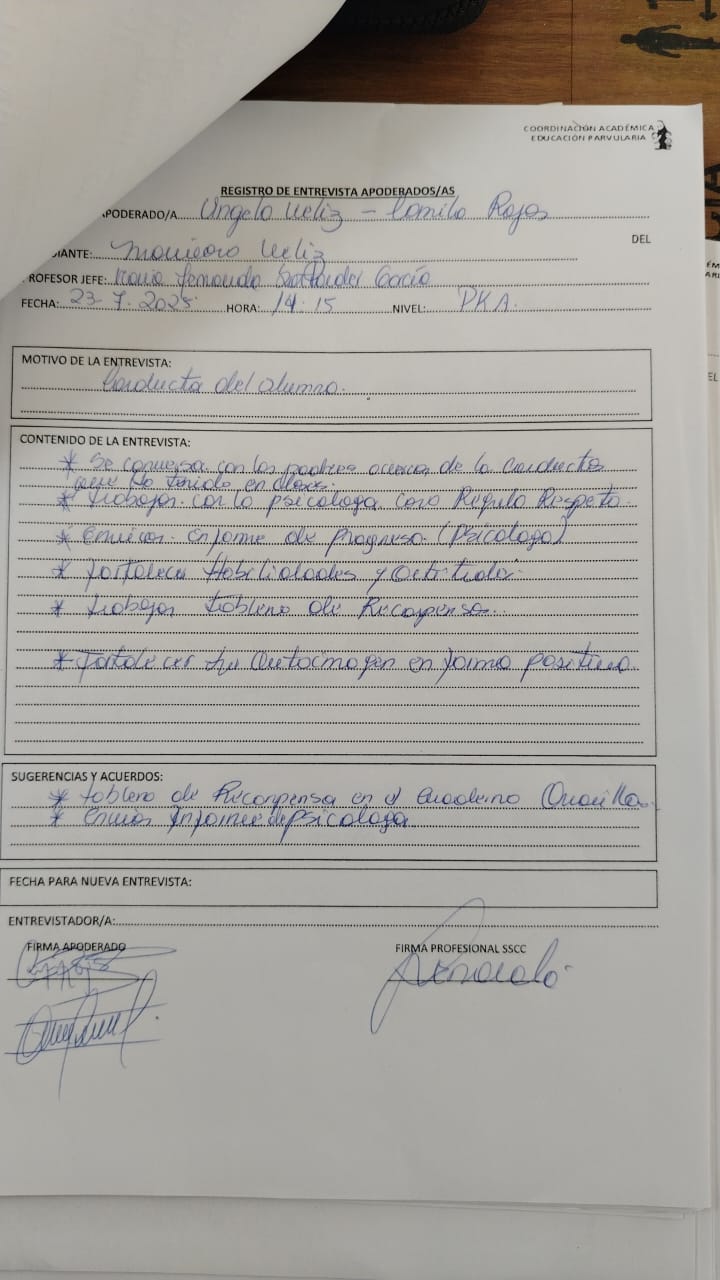 COORDINACIÓN ACADÉMICA
EDUCACIÓN PARVULARIA
REGISTRO DE ENTREVISTA APODERADOS/AS
PODERADO/A Angelo Veliz - Camila Rojas
DEL
IANTE: Veliz
ROFESOR JEFE: Maria Fernanda García
FECHA: 23-7-2025 HORA: 14.15 NIVEL: PKA.
MOTIVO DE LA ENTREVISTA:
Conducta del alumno.
CONTENIDO DE LA ENTREVISTA:
* Se conversa con los padres acerca de la Conducta
que ha tenido en clases.
* trabajar con la psicóloga Respeto.
* Enviar informe de progreso (Psicóloga)
* fortalecer Habilidades y
* trabajar tablero de Recompensa.
* Fortalecer su Autoimagen en forma positiva
SUGERENCIAS Y ACUERDOS:
* tablero de Recompensa en el cuaderno Amarillo.
* Enviar Informe de psicologa
FECHA PARA NUEVA ENTREVISTA:
ENTREVISTADOR/A:
FIRMA APODERADO FIRMA PROFESIONAL SSCC